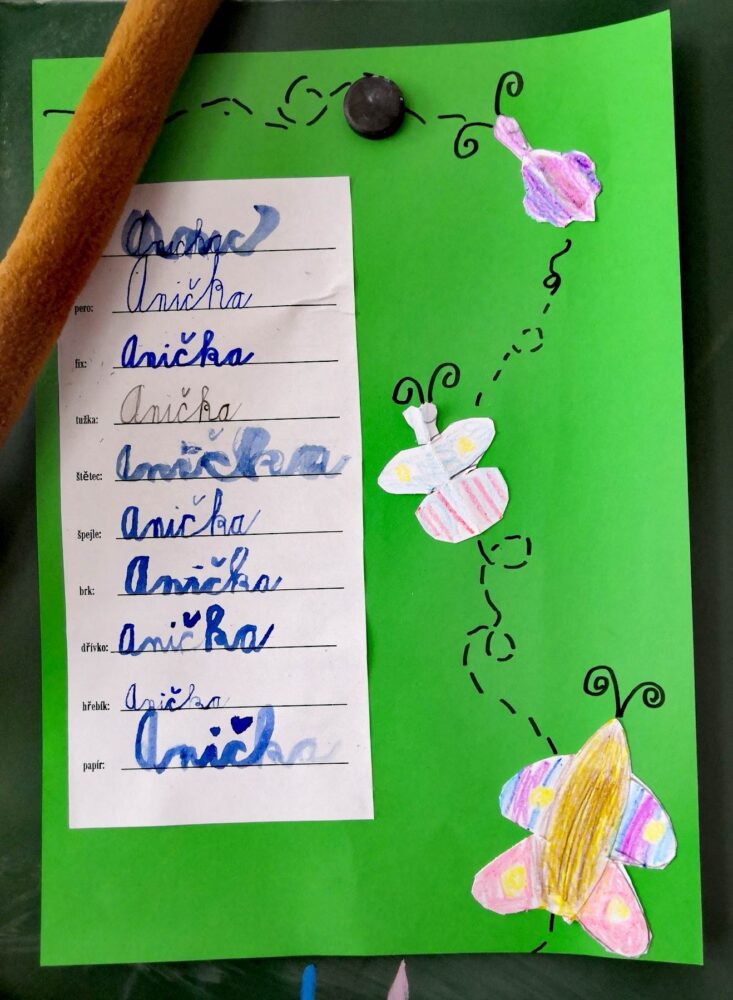 Anička
pero: Anička
fix: Anička
tužka: Anička
štětec: Anička
špejle: Anička
brk: Anička
dřívko: Anička
hřebík: Anička
papír: Anička